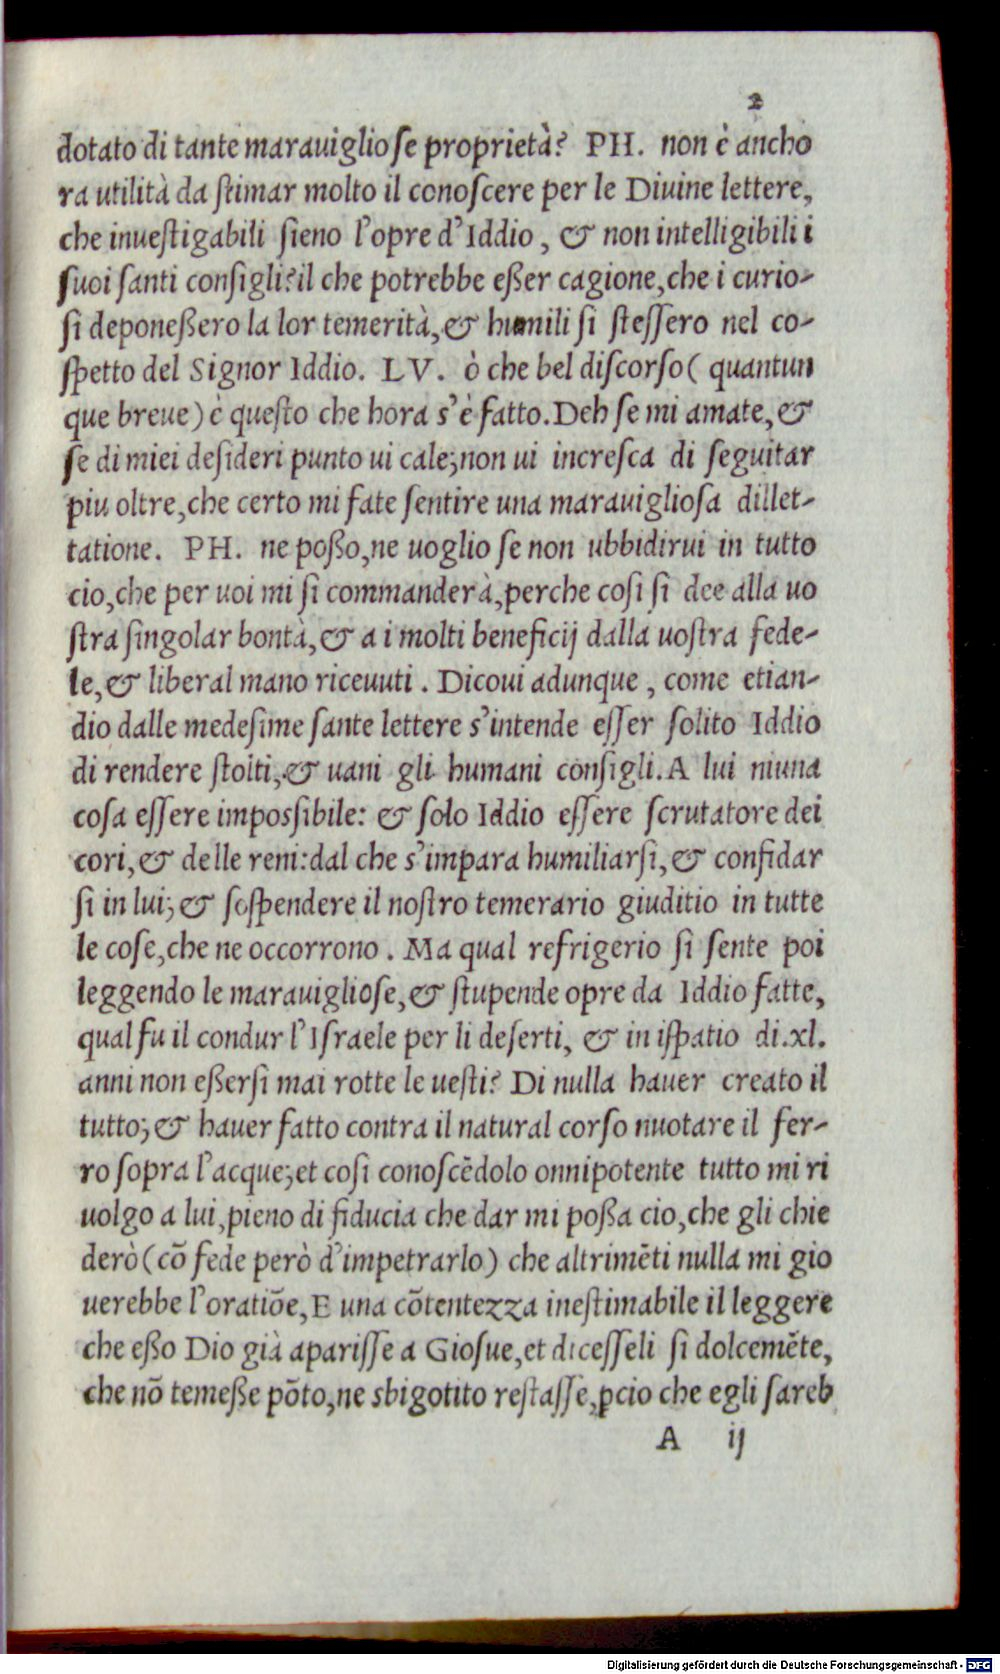 2
dotato di tante marauiglioſe proprietà? PH. non è ancho
ra utilità da ſtimar molto il conoſcere per le Diuine lettere,
che inueſtigabili ſieno l'opre d'Iddio, & non intelligibili i
ſuoi ſanti conſigli? il che potrebbe eßer cagione, che i curio-
ſi deponeßero la lor temerità, & humili ſi ſteſſero nel co-
ſpetto del Signor Iddio. LV. ò che bel diſcorſo (quantun
que breue) è queſto che hora s'è fatto. Deh ſe mi amate, &
ſe di miei deſideri punto ui cale; non ui increſca di ſeguitar
piu oltre, che certo mi fate ſentire una marauiglioſa dillet-
tatione. PH. ne poßo, ne uoglio ſe non ubbidirui in tutto
cio, che per uoi mi ſi commanderà, perche coſi ſi dee alla uo
ſtra ſingolar bontà, & a i molti beneficij dalla uoſtra fede-
le, & liberal mano riceuuti. Dicoui adunque, come etian-
dio dalle medeſime ſante lettere s'intende eſſer ſolito Iddio
di rendere ſtolti, & uani gli humani conſigli. A lui niuna
coſa eſſere impossibile: & ſolo Iddio eſſere ſcrutatore dei
cori, & delle reni: dal che s'impara humiliarſi, & confidar
ſi in lui; & ſoſpendere il noſtro temerario giuditio in tutte
le coſe, che ne occorrono. Ma qual refrigerio ſi ſente poi
leggendo le marauiglioſe, & ſtupende opre da Iddio fatte,
qual fu il condur l'Iſraele per li deſerti, & in iſpatio di.xl.
anni non eßerſi mai rotte le ueſti? Di nulla hauer creato il
tutto; & hauer fatto contra il natural corſo nuotare il fer-
ro ſopra l'acque; et coſi conoſcēdolo onnipotente tutto mi ri
uolgo a lui, pieno di fiducia che dar mi poßa cio, che gli chie
derò (cō fede però d'impetrarlo) che altrimēti nulla mi gio
uerebbe l'oratiōe, E una cōtentezza ineſtimabile il leggere
che eßo Dio già apariſſe a Gioſue, et diceſſeli ſi dolcemēte,
che nō temeße pōto, ne sbigotito reſtaſſe, ꝑcio che egli ſareb
A ij
Digitalisierung gefördert durch die Deutsche Forschungsgemeinschaft - DFG